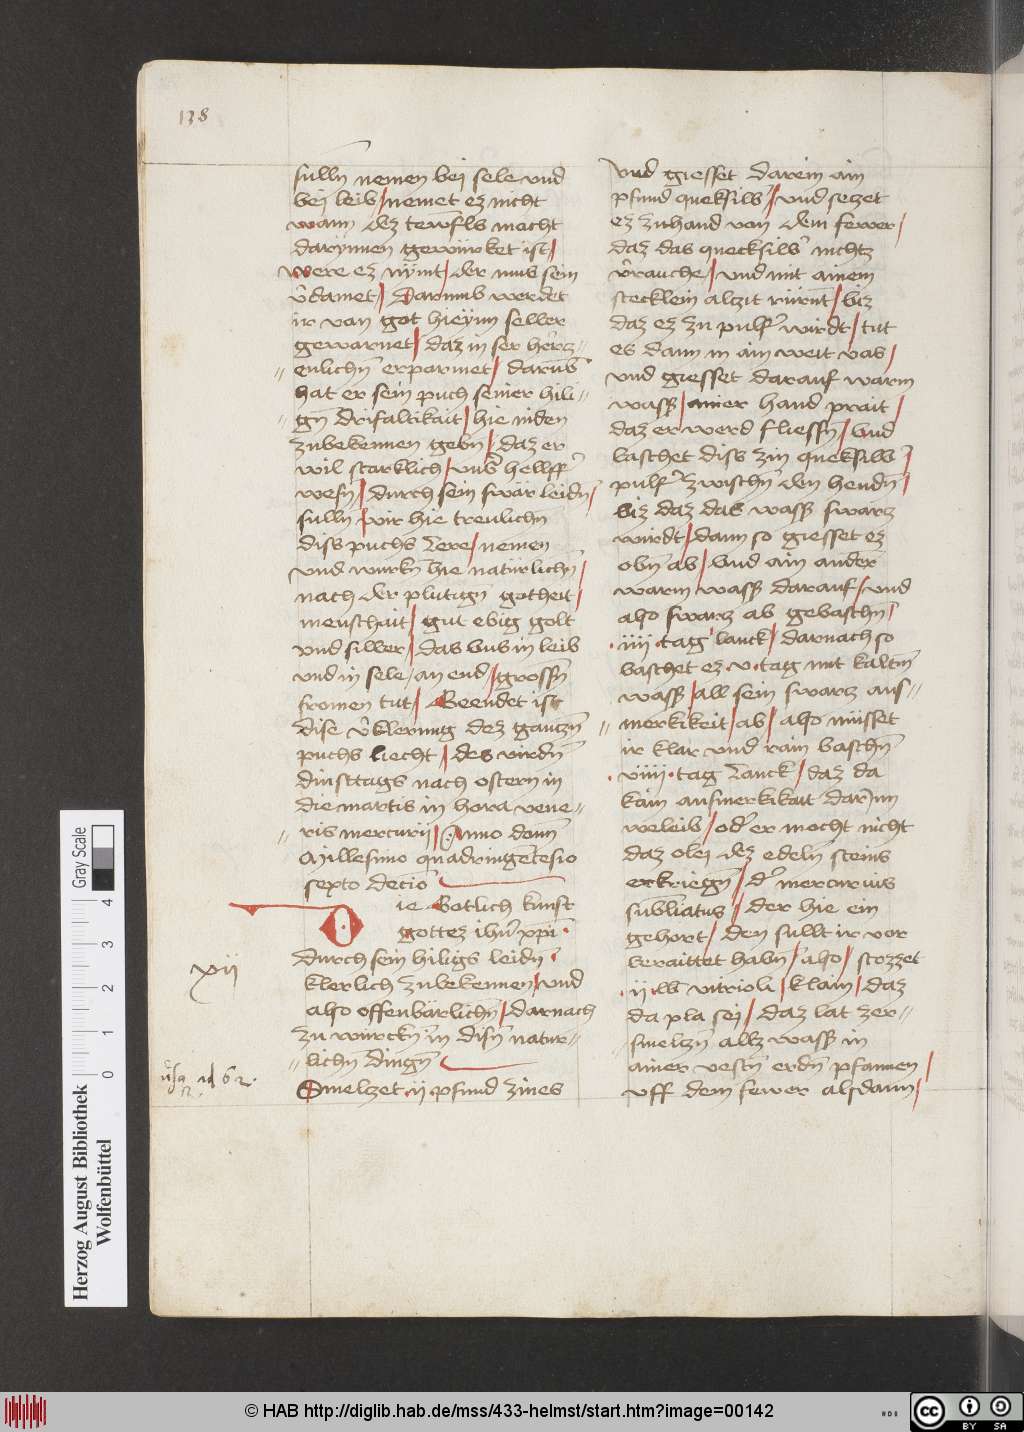 138
sulln nemen bej sele vnd
bej leib / nemet ez nicht
wann dez tewfls macht
darynnen gewürket ist /
were ez nymt / der mus sein
v̓damet / Darumb werdet
ir von got hieynn selber
gewarnet / daz in ser hercz=
=enlichn̄ erparmet / darūb
hat er sein puch seiner hili=
=gn̄ drifaltikait / hie niden
zubekennen gebn̄ / daz er
wil starklich / vnd hellff
wesn̄ / durch sein swär leidn̄ /
sulln / wir hie treulichn̄
diss puchs Lere / nemen
vnd wurkn̄ hie natürlichn̄ /
nach der plutign̄ gotheit /
menschait / gut ebig golt
vnd silber / das vns in leib
vnd in sele / an end / grossn̄
fromen tut / Geendet ist
dise v̓klerung dez ganczn̄
puchs liecht / des virdn̄
dinsttags nach ostern in
die martis in hora vene=
=ris mercurij / Anno domī
Millesimo quadringētesio
septo decio
Die Gotlich kunst
gottez ihū xp̄i
xij
durch sein hiligs leidn̄
klerlich zubekennen / vnd
also offenbärlichn̄ / darnach
zu würckn̄ in disn̄ natur=
=lichn̄ dingn̄
Smelczet ij pfund zines
vnd giesset darein ain
pfund queksilb̓ / vnd seczet
ez zuhand von dem fewer /
daz das quecksilb̓ nichtz
v̓rauche / vnd mit ainem
stecklein alzit rürnt / biz
daz ez zu pulf̓ wirdt / tut
es dann in ain weit vas /
vnd giesset darauf warm
wass̓ / ainer hand prait /
daz er werd fliessn̄ / vnd
baschet diss zin queksilb̓ /
pulf̓ zwischn̄ den hendn̄ /
biz daz das wass̓ swarz
wirdt / dann so giesset ez
obn̄ ab / vnd ain ander
warm wass̓ darauf / vnd
also swarz ab gebaschn̄ /
iiij tag lanck / darnach so
baschet ez v tag mit kaltm̄
wass̓ / all sein swarz aus=
=merkikeit / ab / also müsset
ir klar vnd rain baschn̄
viiij tag Lanck / daz da
kain ausmerkikait darinn
weleib / od̓ er mocht nicht
daz olej dez edeln̄ steins
erkriegn̄ / d̓ mercurius
sublīatus / der hie ein
gehort / den sullt ir vor
beraittet habn̄ / also / stozzet
ij lb̄ vitrioli / klain / daz
da pla sej / daz lat zer=
=smelczn̄ allz wass̓ in
ainer vestn̄ erdn̄ pfannen /
vff dem fewer alsdann /
Herzog August Bibliothek
Wolfenbüttel
Gray Scale
0 1 2 3 4
© HAB http://diglib.hab.de/mss/433-helmst/start.htm?image=00142
cc BY SA